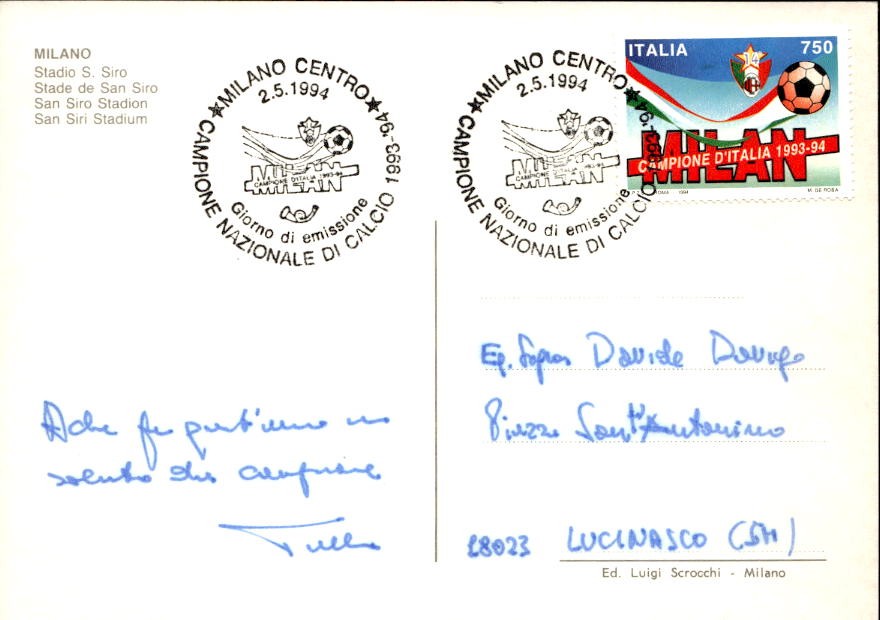 MILANO
Stadio S. Siro
Stade de San Siro
San Siro Stadion
San Siri Stadium
MILANO CENTRO
2.5.1994
MILAN
CAMPIONE D'ITALIA 1993-94
Giorno di emissione
CAMPIONE NAZIONALE DI CALCIO 1993-'94
MILANO CENTRO
2.5.1994
MILAN
CAMPIONE D'ITALIA 1993-94
Giorno di emissione
CAMPIONE NAZIONALE DI CALCIO 1993-'94
ITALIA 750
14
MILAN
CAMPIONE D'ITALIA 1993-94
ROMA 1994 M. DE ROSA
Eg. Davide
Piazza Sant'Antonino
18023 LUCINASCO (IM)
un
saluto
Ed. Luigi Scrocchi - Milano